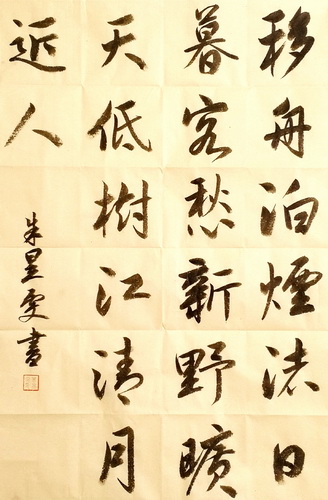 移舟泊煙渚日
暮客愁新野曠
天低樹江清月
近人
朱昱雯書